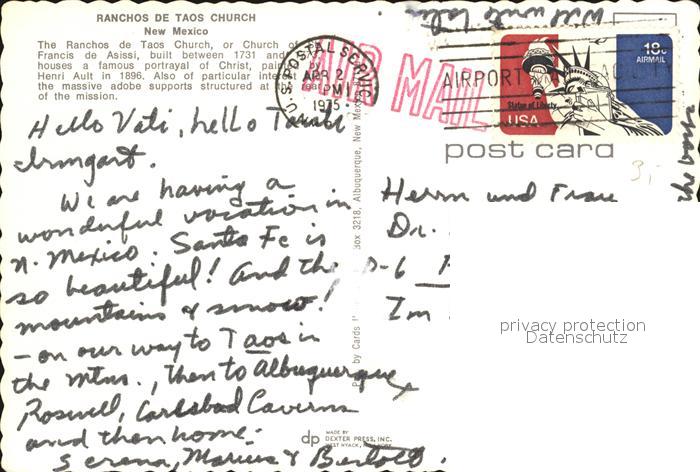 RANCHOS DE TAOS CHURCH
New Mexico
The Ranchos de Taos Church, or Church of
Francis de Asissi, built between 1731 and
houses a famous portrayal of Christ, pain
Henri Ault in 1896. Also of particular intere
the massive adobe supports structured at the rear
of the mission.
U.S. POSTAL SERVICE
APR 2
PM
1975
AIR MAIL
AIRPORT MAIL FACILITY
18c
AIRMAIL
Statue of Liberty
USA
post card
3,-
Will write later
Hello Vati, hello Tante
Irmgart.
We are having a
wonderful vacation in
N. Mexico. Santa Fe is
so beautiful! And the
mountains & snow!
– on our way to Taos in
the mtns., then to Albuquerque,
Roswell, Carlsbad Caverns
and then home.
Serena, Marius & Bertold.
Box 3218, Albuquerque, New Mex
by Cards
Herrn und Frau
Dr.
D-6
Im
privacy protection
Datenschutz
dp
MADE BY
DEXTER PRESS, INC.
WEST NYACK, NEW YORK